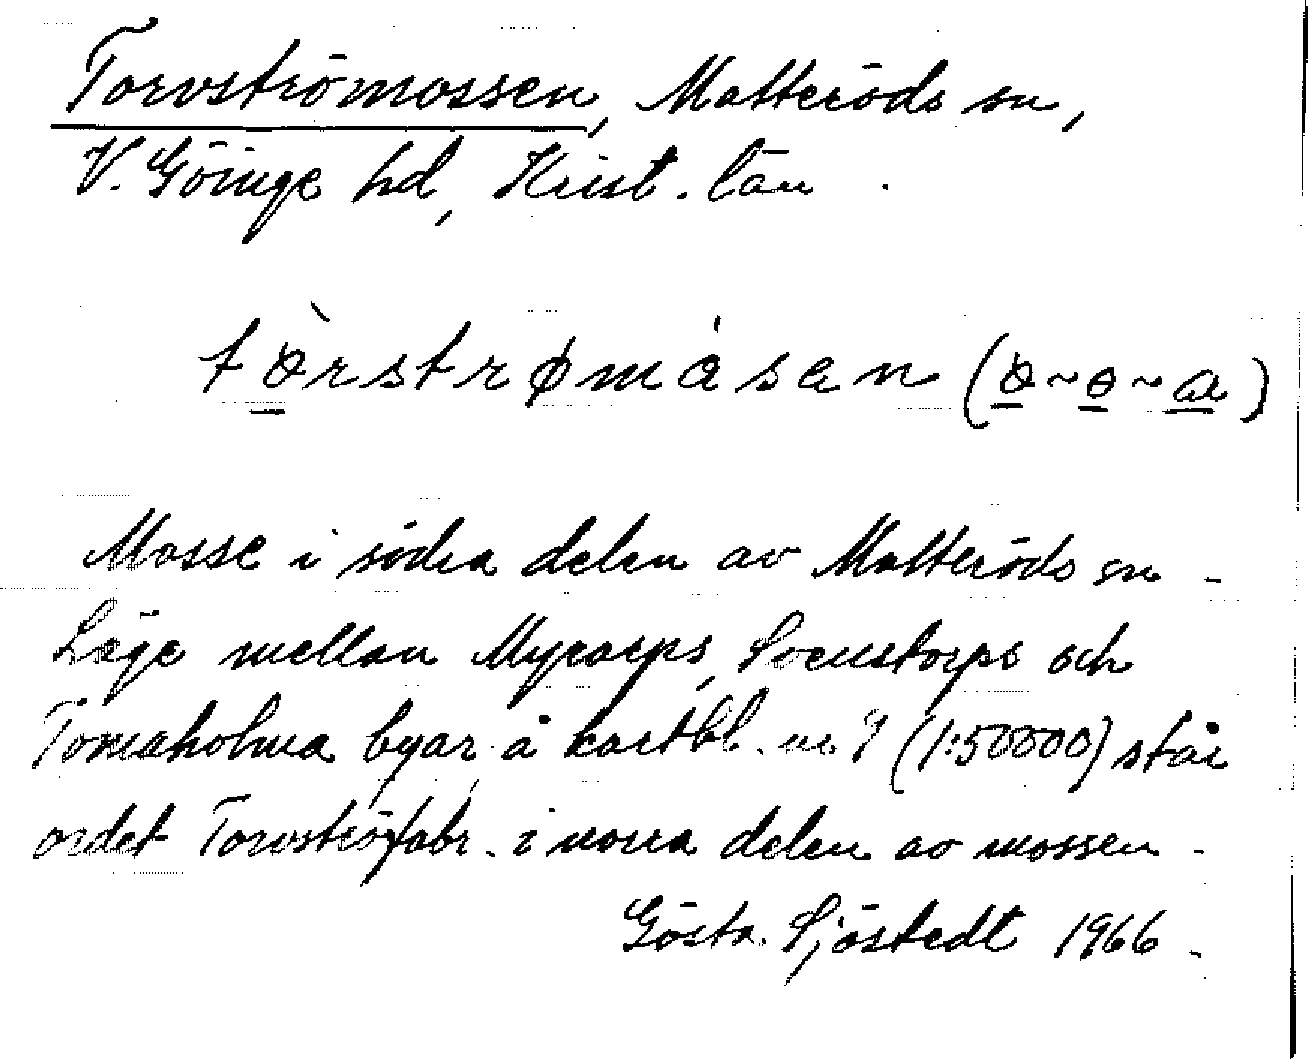 Torvströmossen, Matteröds sn,
V. Göinge hd, Krist. län.
tòrstrømåsan (ò~ɵ~a)
Mosse i södra delen av Matteröds sn.
Läge mellan Myrarps, Svenstorps och
Tomaholma byar, å kartbl. nr 9 (1:50000) står
ordet Torvströfabr. i norra delen av mossen.
Gösta Sjöstedt 1966.